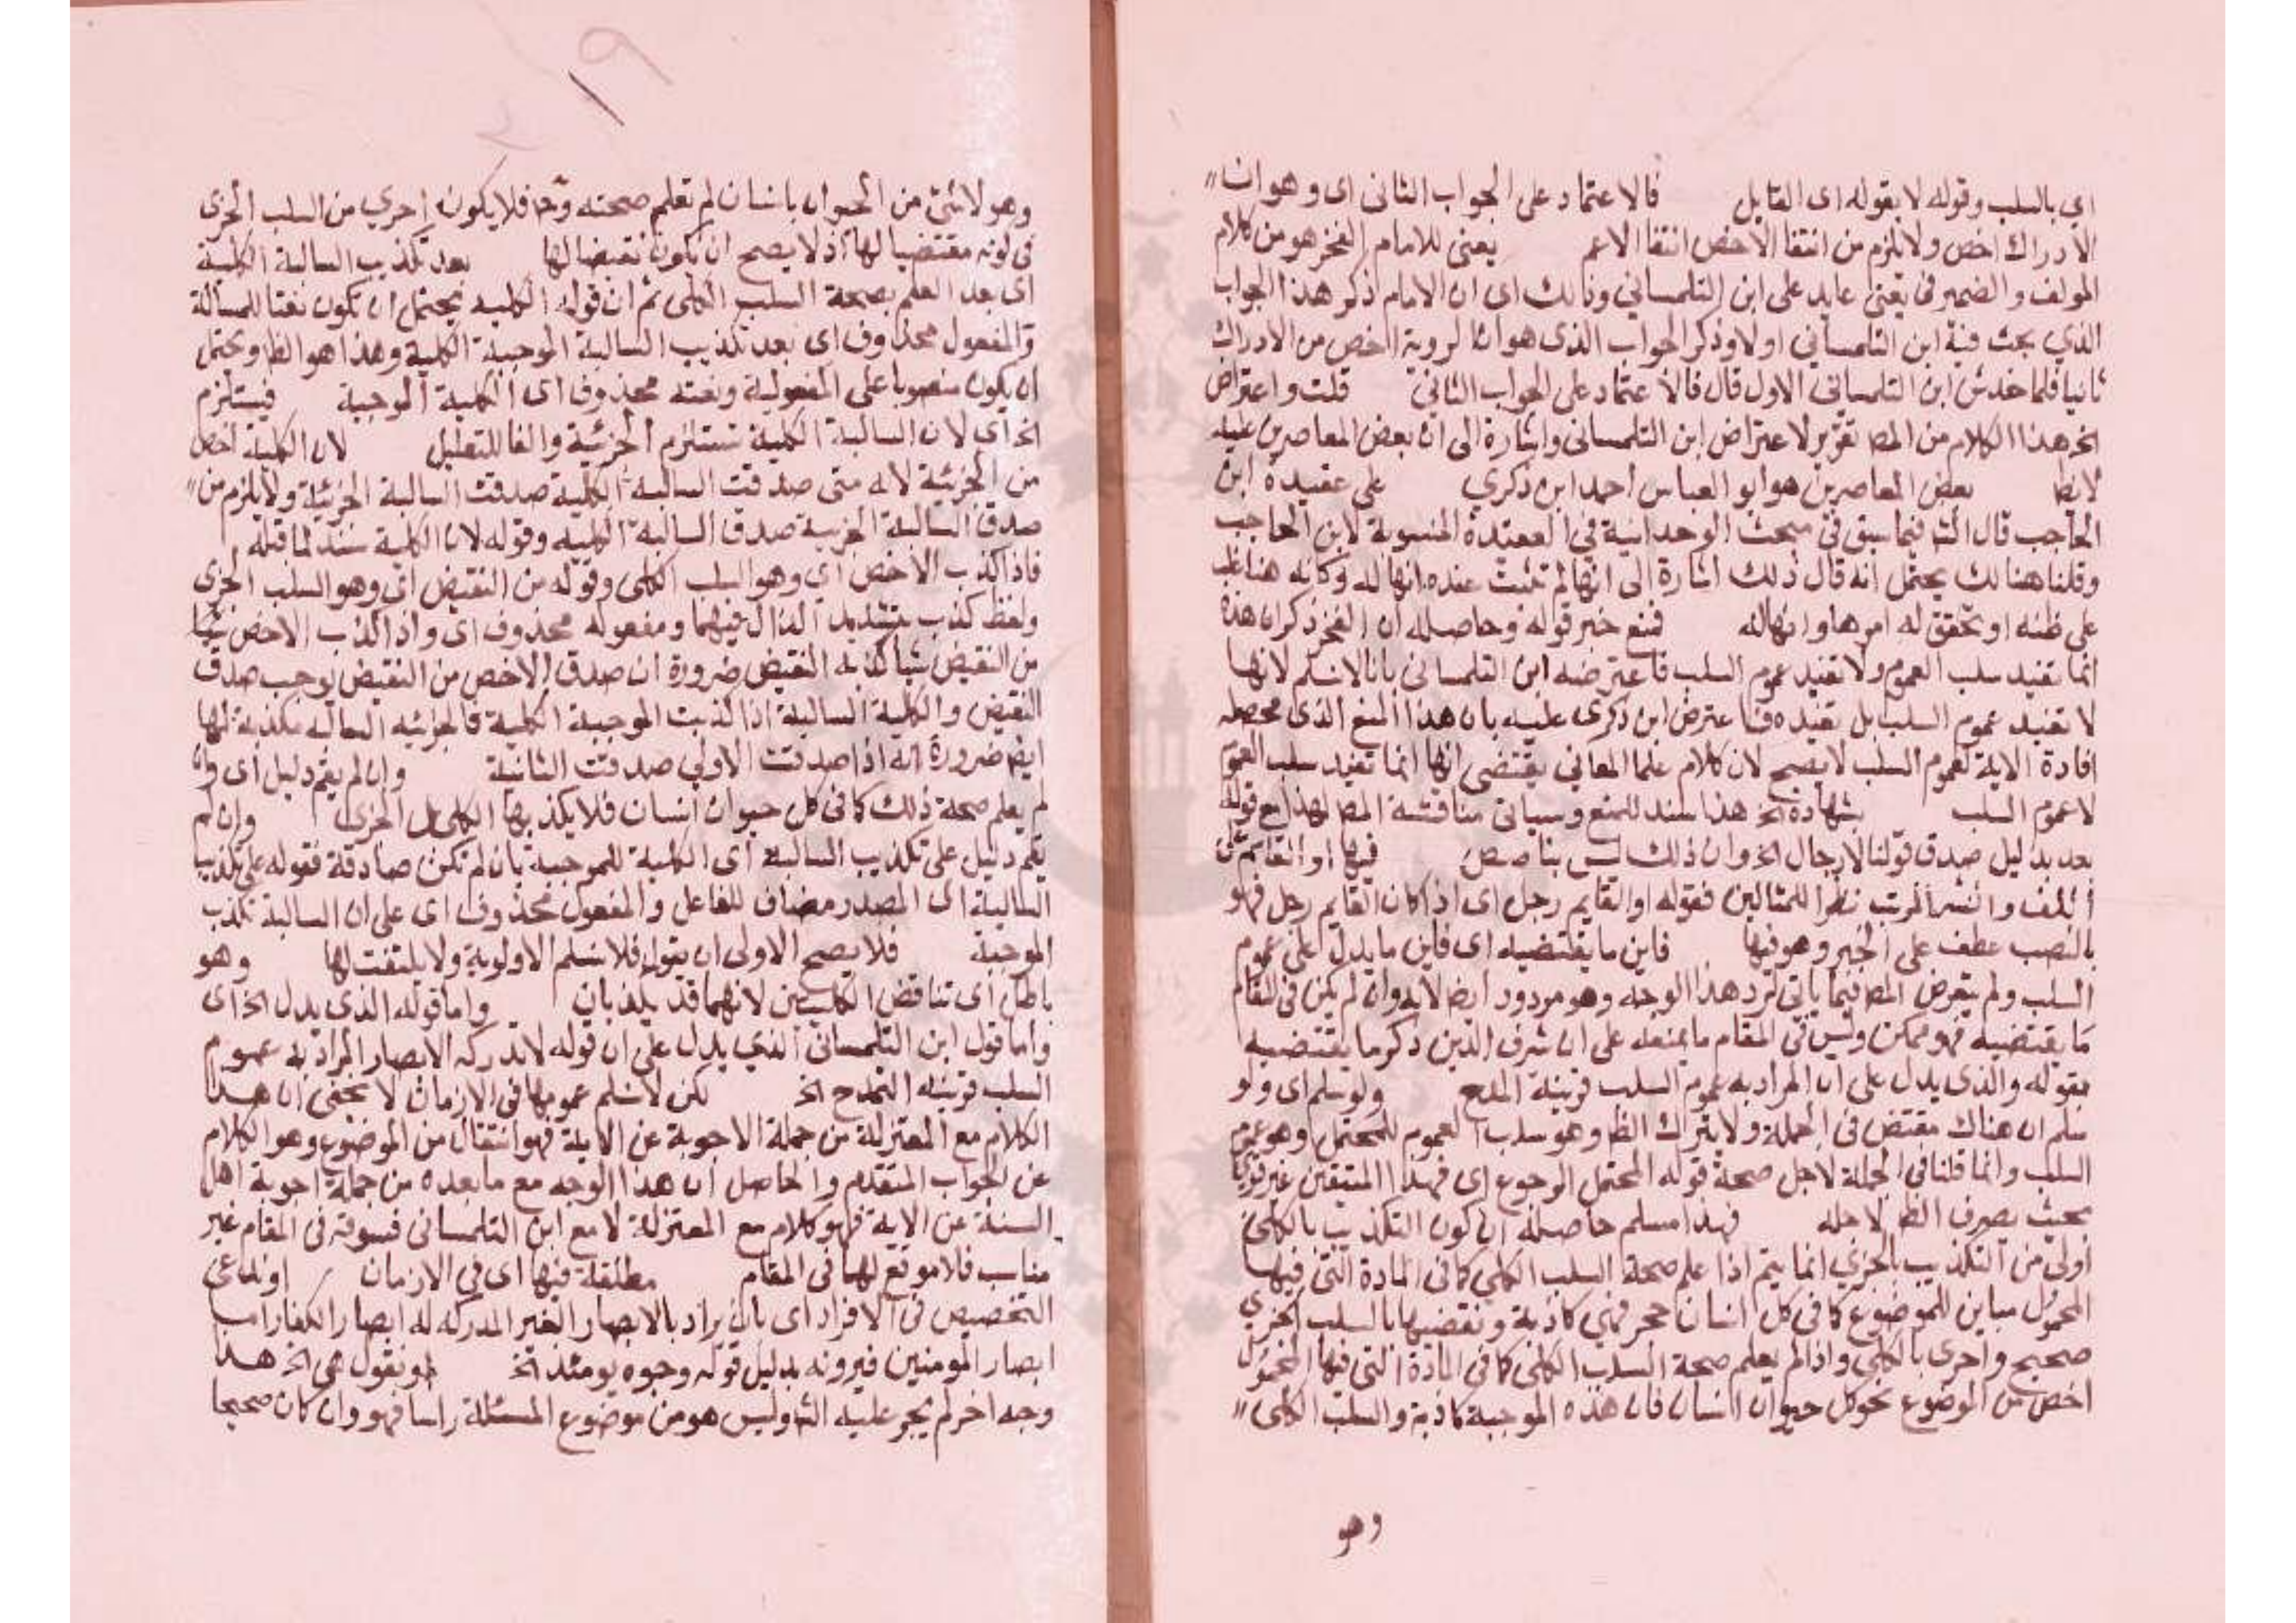 اي بالسلب وقوله لا بقوله اى القايل فالاعتماد على الجواب الثانى اى وهو ان
الادراك اخص ولا يلزم من انتفا الاخص انتفا الاعم يعنى للامام الفخر هو من كلام
المولف والضمير فى يعنى عايد على ابن التلمسانى وذلك اى ان الامام ذكر هذا الجواب
الذي بحث فيه ابن التلمسانى اولا وذكر الجواب الذى هو ان الروية اخص من الادراك
ثانيا فلما خدش ابن التلمسانى الاول قال فالاعتماد على الجواب الثانى قلت واعتراض
الخ هذا الكلام من المص تقرير لاعتراض ابن التلمسانى واشارة الى ان بعض المعاصرين عليه
بعض المعاصرين هو ابو العباس احمد ابن ذكري على عقيدة ابن
الحاجب قال الش فيما سبق فى مبحث الوحدانية في العقيدة المنسوبة لابن الحاجب
وقلنا هنالك يحتمل انه قال ذلك اشارة الى انها لم تثبت عنده انها له وكانه هنا غلب
على ظنه او تحقق له امرها وانها له فمنع خبر قوله وحاصله ان الفخر ذكر ان هذه
انما تفيد سلب العموم ولا تفيد عموم السلب فاعترضه ابن التلمسانى بانا لا نسلم لانها
لا تفيد عموم السلب بل تفيده فاعترض ابن ذكرى عليه بان هذا المنع الذى محصله
افادة الاية لعموم السلب لا يصح لان كلام علما المعانى يقتضى انها انما تفيد سلب العموم
لا عموم السلب بشهادة الخ هذا سند للمنع وسياتى مناقشة المص لهذا مع قوله
بعد بدليل صدق قولنا لا رجال الخ وان ذلك ليس بناصص فيها او القايم من
اللف والنشر المرتب نظرا للمثالين فقوله او القايم رجل اى اذا كان القايم رجل فهو
بالنصب عطف على الخبر وهو فيها فاين ما يقتضيه اى فاين ما يدل على عموم
السلب ولم يتعرض المص فيما ياتى لرد هذا الوجه وهو مردود ايضا لانه وان لم يكن فى المقام
ما يقتضيه فهو ممكن وليس فى المقام ما يمنعه على ان شرف الدين ذكر ما يقتضيه
بقوله والذى يدل على ان المراد به عموم السلب قرينة المدح ولو سلم اى ولو
سلم ان هناك مقتض فى الجملة ولا يترك الظ وهو سلب العموم للمحتمل وهو عموم
السلب وانما قلنا فى الجملة لاجل صحة قوله المحتمل الوجوع اى فهذا المتيقن غير قوى
بحيث يصرف الظ لاجله فهذا مسلم حاصله ان كون التكذيب بالكلى
اولى من التكذيب بالجزي انما يتم اذا علم صحة السلب الكلى كما فى المادة التى فيها
المحمول مباين للموضوع كما فى كل انسان حجر فهي كاذبة ونقضها بالسلب الجزي
صحيح واحرى بالكلي واذا لم يعلم صحة السلب الكلى كما فى المادة التى فيها المحمول
اخص من الموضوع نحو كل حيوان انسان فان هذه الموجبة كاذبة والسلب الكلى
وهو
٢١٩
وهو لا شئ من الحيوان بانسان لم تعلم صحته وح فلا يكون احري من السلب الجزى
فى كونه مقتضيا لها اذ لا يصح ان يكون نقيضا لها بعد تكذيب السالبة الكلية
اى بعد العلم بصحة السلب الكلى ثم ان قوله الكلية يحتمل ان تكون نعتا للسالبة
والمفعول محذوف اى بعد تكذيب السالبة الموجبة الكلية وهذا هو الظ ويحتمل
ان يكون منصوبا على المفعولية ونعته محذوف اى الكلية الموجبة فيستلزم
الخ اى لان السالبة الكلية تستلزم الجزئية والفا للتعليل لان الكلية اخص
من الجزئية لانه متى صدقت السالبة الكلية صدقت السالبة الجزئية ولا يلزم من
صدق السالبة الجزيية صدق السالبة الكلية وقوله لان الكلية سند لما قبله
فاذا كذب الاخص اي وهو السلب الكلى وقوله من النقيض اي وهو السلب الجزى
ولفظ كذب بتشديد الذال فيهما ومفعوله محذوف اى واذا كذب الاخص شيا
من النقيض شيا كذبه النقيض ضرورة ان صدق الاخص من النقيض يوجب صدق
النقيض والكلية السالبة اذا كذبت الموجبة الكلية فالجزئيه السالبه مكذبة لها
ايضا ضرورة انه اذا صدقت الاولى صدقت الثانية وان لم يقم دليل اى وان
لم يعلم صحة ذلك كما فى كل حيوان انسان فلا يكذبها الكلى بل الجزى وان لم
يقم دليل على تكذيب السالبة اى الكلية للموجبة بان لم تكن صادقة فقوله على تكذيب
السالبة اى المصدر مضاف للفاعل والمفعول محذوف اى على ان السالبة تكذب
الموجبة فلا يصح الاولى ان يقول فلا نسلم الاولوية ولا يلتفت لها وهو
باطل اى تناقض الكليتين لانهما قد يكذبان واما قوله الذى يدل الخ اى
واما قول ابن التلمسانى الذي يدل على ان قوله لا تدركه الابصار المراد به عموم
السلب قرينة التمدح الخ لكن لا نسلم عمومها فى الازمان لا يخفى ان هذا
الكلام مع المعتزلة من جملة الاجوبة عن الاية فهو انتقال من الموضوع وهو الكلام
عن الجواب المتقدم والحاصل ان هذا الوجه مع ما بعده من جملة اجوبة اهل
السنة عن الاية فهو كلام مع المعتزلة لا مع ابن التلمسانى فسوقه فى المقام غير
مناسب فلا موقع لها فى المقام مطلقة فيها اى في الازمان او نمانع
التخصيص فى الافراد اى بان يراد بالابصار الغير المدركه له ابصار الكفار اما
ابصار المومنين فيرونه بدليل قوله وجوه يومئذ الخ او نقول هى الخ هذا
وجه اخر لم يجر عليه الش وليس هو من موضوع المسئلة راسا فهو وان كان صحيحا